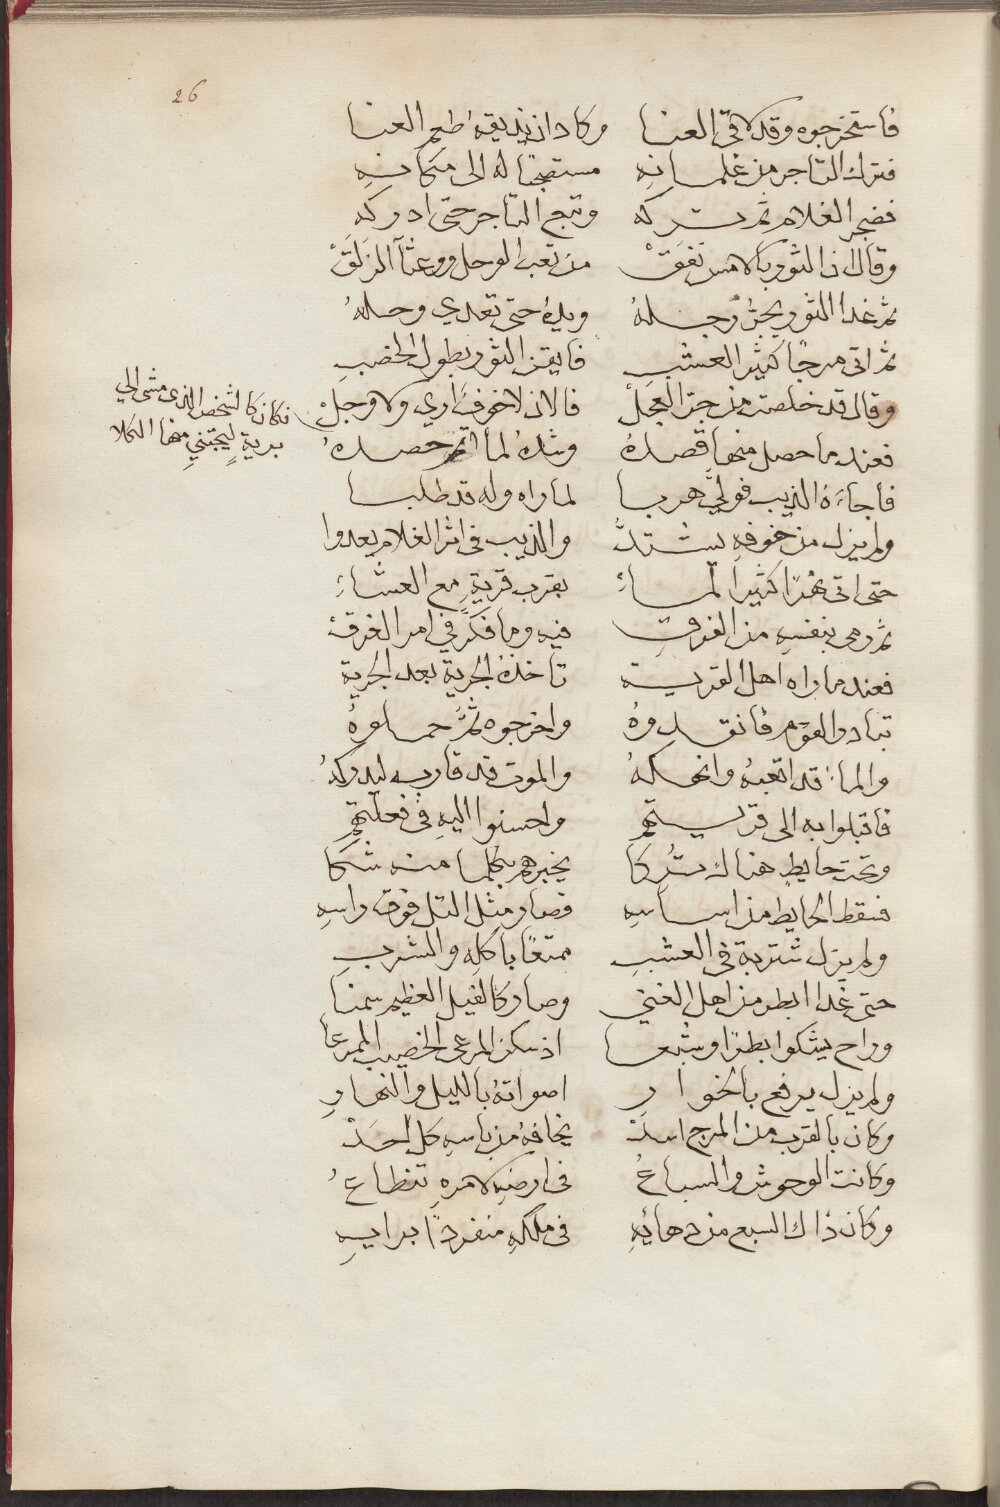 26
فاستخرجوه وقد لاقى العنا وكاد ان يذيقه طعم الفنا
فترك التاجر من غلمانه مستصحبا له الى مكانه
فضجر الغلام ثم تركه وتبع التاجر حتى ادركه
وقال ان الثور بالامس نفق من تعب الوحل ووعثآ الزلق
ثم غدا الثور يجر رجله ويده حتى تعدي وحله
ثم اتى مرجا كثير العشب فايقن الثور بطول الخصب
وقال قد خلصت من جر العجل فالان لا خوف اري ولا وجل
فكان كالشخص الذى مشى الي
برية ليجتني منها الكلا
فعند ما حصل منها قصده وشده لما اتم حصده
فاجاءه الذيب فولي هربا لما راه وله قد طلبا
ولم يزل من خوفه يشتد والذيب فى اثر الغلام يعدوا
حتى اتى نهرا كثير الماء بقرب قرية مع العشاء
ثم رمى بنفسه من الفرق فيه وما فكر في امر الغرق
فعند ما راه اهل القرية تاخذه الجرية بعد الجرية
تبادر القوم فانقدوه واخرجوه ثم حملوه
والماء قد اتعبه وانهكه والموت قد قارب ليدركه
فاقبلوا به الى قريتهم واحسنوا اليه فى فعلتهم
وتحت حايط هناك تركا يخبرهم بكلما منه شكا
فسقط الحايط من اساسه فصار مثل التل فوق راسه
ولم يزل شتربة فى العشب ممتعا باكله والشرب
حتى غدا ابطر من اهل الغني وصار كالفيل العظيم سمنا
وراح يشكوا بطرا وشبعا اذ سكن المرعى الخصيب الممرعا
ولم يزل يرفع بالخوار اصواته بالليل والنهار
وكان بالقرب من المرج اسد يخافه من باسه كل احد
وكانت الوحوش والسباع فى ارضه لامره تنطاع
وكان ذاك السبع من دهائه فى ملكه منفردا برايه